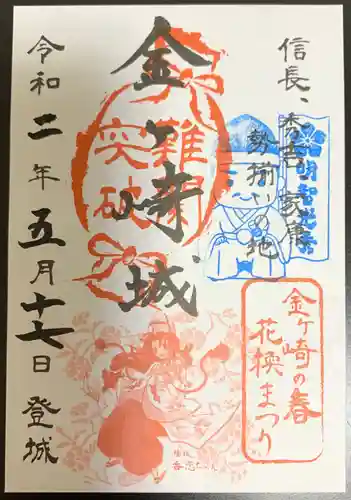 信長、秀吉、家康
勢揃いの地
明智光秀
金ヶ崎城
難関
突破
金ヶ崎の春
花換まつり
令和二年五月十七日 登城